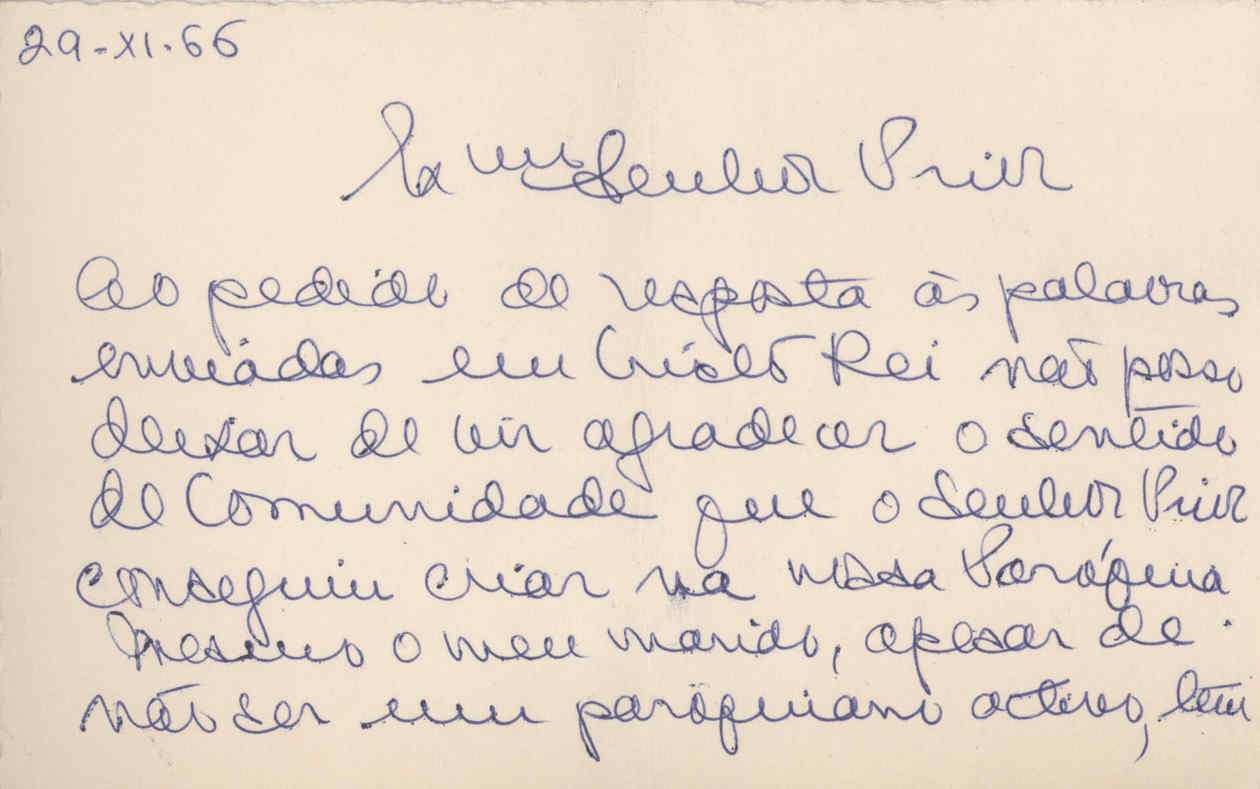 29-XI-66
Exmo Senhor Prior
Ao pedido de resposta às palavras
enviadas em Cristo Rei não posso
deixar de vir agradecer o sentido
de Comunidade que o Senhor Prior
conseguiu criar na nossa Paróquia
Mesmo o meu marido, apesar de
não ser um paroquiano activo, tem